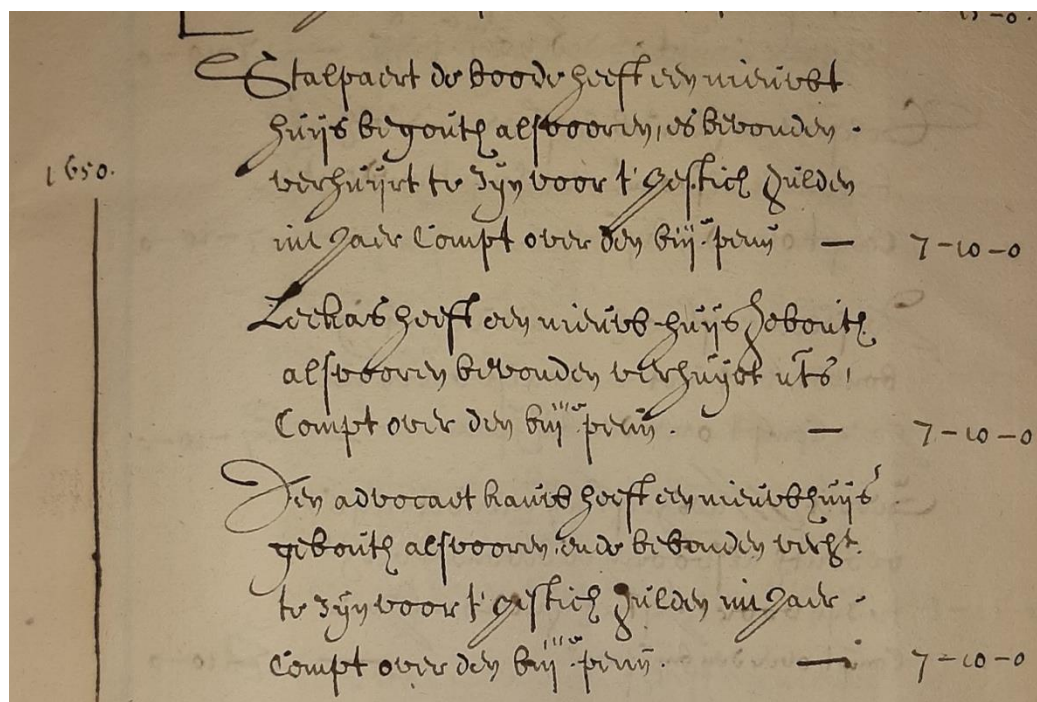 Stalpaert de boode heeft een nieuw
huijs gebouth alsvooren, es bevonden
1650.
verhuijrt te zijn voor t'sestich gulden
int Jaer Compt over den viij.en penn — 7-10-0
heeft een nieuw-huijs gebouth
alsvooren bevonden verhuyrt uts,
Compt over den viij.en penn. — 7-10-0
Den advocaet heeft een nieuw huijs
gebouth alsvooren ende bevonden verht.
te zijn voor t'sestich gulden int Jaer
Compt over den viij.en penn. — 7-10-0